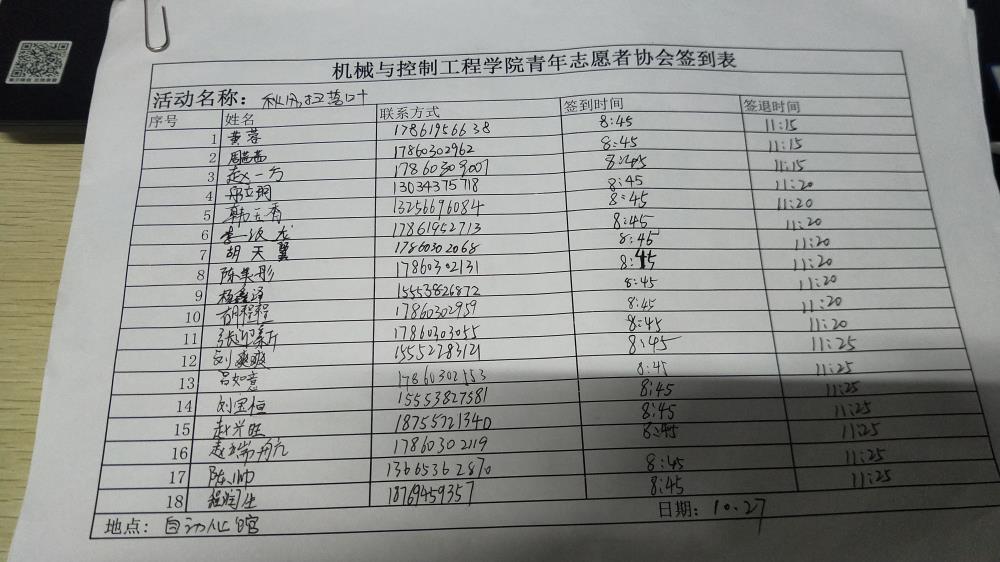 机械与控制工程学院青年志愿者协会签到表
活动名称: 秋风扫落叶
序号 姓名 联系方式 签到时间 签退时间
1 黄蓉 17861956638 8:45 11:15
2 17860302962 8:45 11:15
3 赵一方 17860309007 8:45 11:15
4 13034375718 8:45 11:20
5 韩云香 13256696084 8:45 11:20
6 17861952713 8:45 11:20
7 胡天翼 17860302068 8:45 11:20
8 陈美彤 17860302131 8:45 11:20
9 杨鑫泽 15553826872 8:45 11:20
10 胡程程 17860302959 8:45 11:20
11 张迎新 17860303055 8:45 11:20
12 刘爽爽 15552283121 8:45 11:25
13 吕如意 17860302553 8:45 11:25
14 刘宝恒 15553827381 8:45 11:25
15 赵兴旺 18755721340 8:45 11:25
16 17860302119 8:45 11:25
17 陈帅 13665362870 8:45 11:25
18 18769459357 8:45 11:25
地点: 自动化馆 日期: 10.27